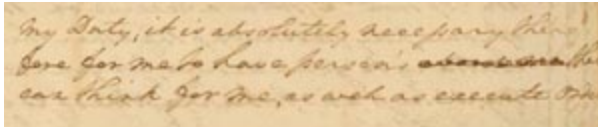 my Duty, it is absolutely necessary there
fore for me to have person's that
can think for me, as well as execute Or